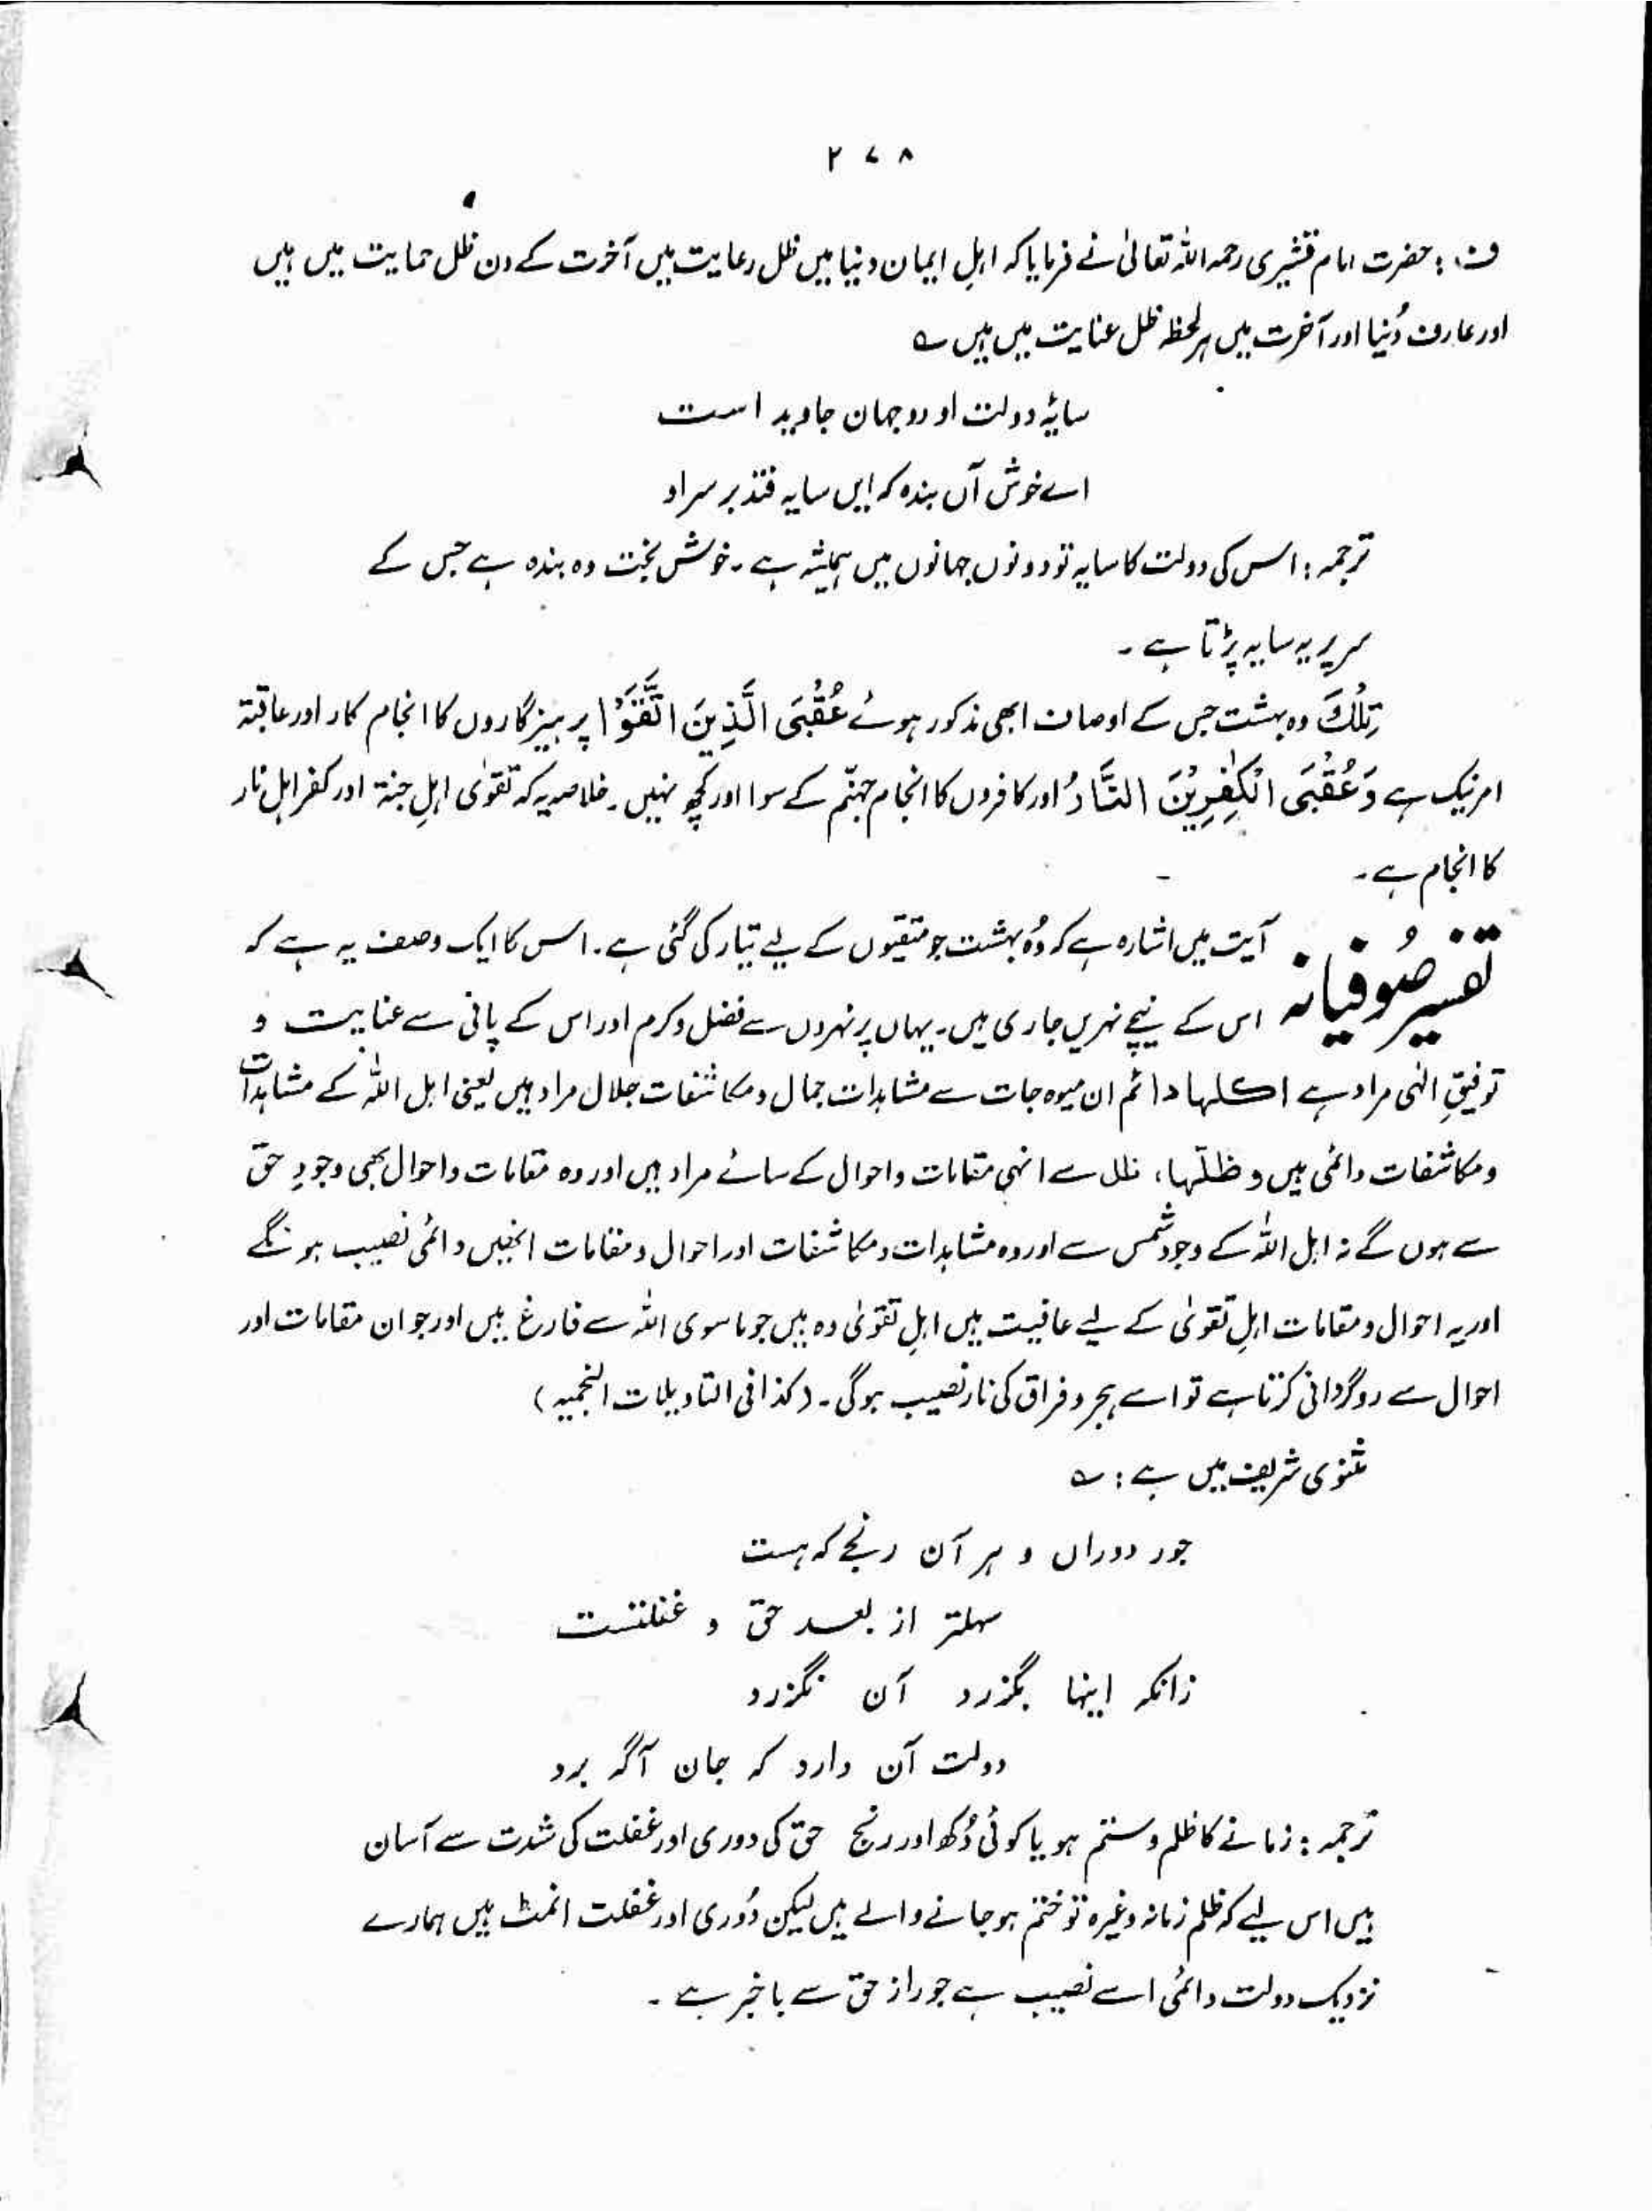 ۲۷۸
ف: حضرت امام قشیری رحمہ اللہ تعالیٰ نے فرمایا کہ اہلِ ایمان دنیا میں ظل رعایت میں آخرت کے دن ظل حمایت میں ہیں
اور عارف دُنیا اور آخرت میں ہر لحظہ ظل عنایت میں ہیں ؎
سایۂ دولت او دو جہان جاوید است
اے خوش آں بندہ کہ ایں سایہ فتد بر سر او
ترجمہ: اس کی دولت کا سایہ تو دونوں جہانوں میں ہمیشہ ہے۔ خوش بخت وہ بندہ ہے جس کے
سر پر یہ سایہ پڑتا ہے۔
تِلْكَ وہ بہشت جس کے اوصاف ابھی مذکور ہوئے عُقْبَى الَّذِيْنَ اتَّقَوْا پرہیزگاروں کا انجام کار اور عاقبۃ
امر نیک ہے وَعُقْبَى الْكٰفِرِيْنَ النَّارُ اور کافروں کا انجام جہنّم کے سوا اور کچھ نہیں۔ خلاصہ یہ کہ تقویٰ اہلِ جنۃ اور کفر اہل نار
کا انجام ہے۔
تفسیر صُوفیانہ آیت میں اشارہ ہے کہ وُہ بہشت جو متقیوں کے لیے تیار کی گئی ہے۔ اس کا ایک وصف یہ ہے کہ
اس کے نیچے نہریں جاری ہیں۔ یہاں پر نہروں سے فضل و کرم اور اس کے پانی سے عنایت و
توفیقِ الٰہی مراد ہے اکلہا دائم ان میوہ جات سے مشاہدات جمال و مکاشفات جلال مراد ہیں یعنی اہل اللہ کے مشاہدات
و مکاشفات دائمی ہیں و ظلّہا، ظلل سے انہی مقامات و احوال کے سائے مراد ہیں اور وہ مقامات و احوال بھی وجودِ حق
سے ہوں گے نہ اہل اللہ کے وجود شمس سے اور وہ مشاہدات و مکاشفات اور احوال و مقامات انھیں دائمی نصیب ہونگے
اور یہ احوال و مقامات اہلِ تقویٰ کے لیے عافیت ہیں اہلِ تقویٰ وہ ہیں جو ماسوی اللہ سے فارغ ہیں اور جو ان مقامات اور
احوال سے روگردانی کرتا ہے تو اسے ہجر و فراق کی نار نصیب ہوگی۔ (کذا فی التاویلات النجمیہ)
مثنوی شریف میں ہے: ؎
جور دوراں و ہر آن رنجے کہ ہست
سہلتر از بعد حق و غفلتست
زانکہ اینہا بگزرد آن نگزرد
دولت آن دارد کہ جان آگہ برد
ترجمہ: زمانے کا ظلم و ستم ہو یا کوئی دُکھ اور رنج حق کی دوری اور غفلت کی شدت سے آسان
ہیں اس لیے کہ ظلم زمانہ وغیرہ تو ختم ہو جانے والے ہیں لیکن دُوری اور غفلت انمٹ ہیں ہمارے
نزدیک دولت دائمی اسے نصیب ہے جو راز حق سے باخبر ہے۔